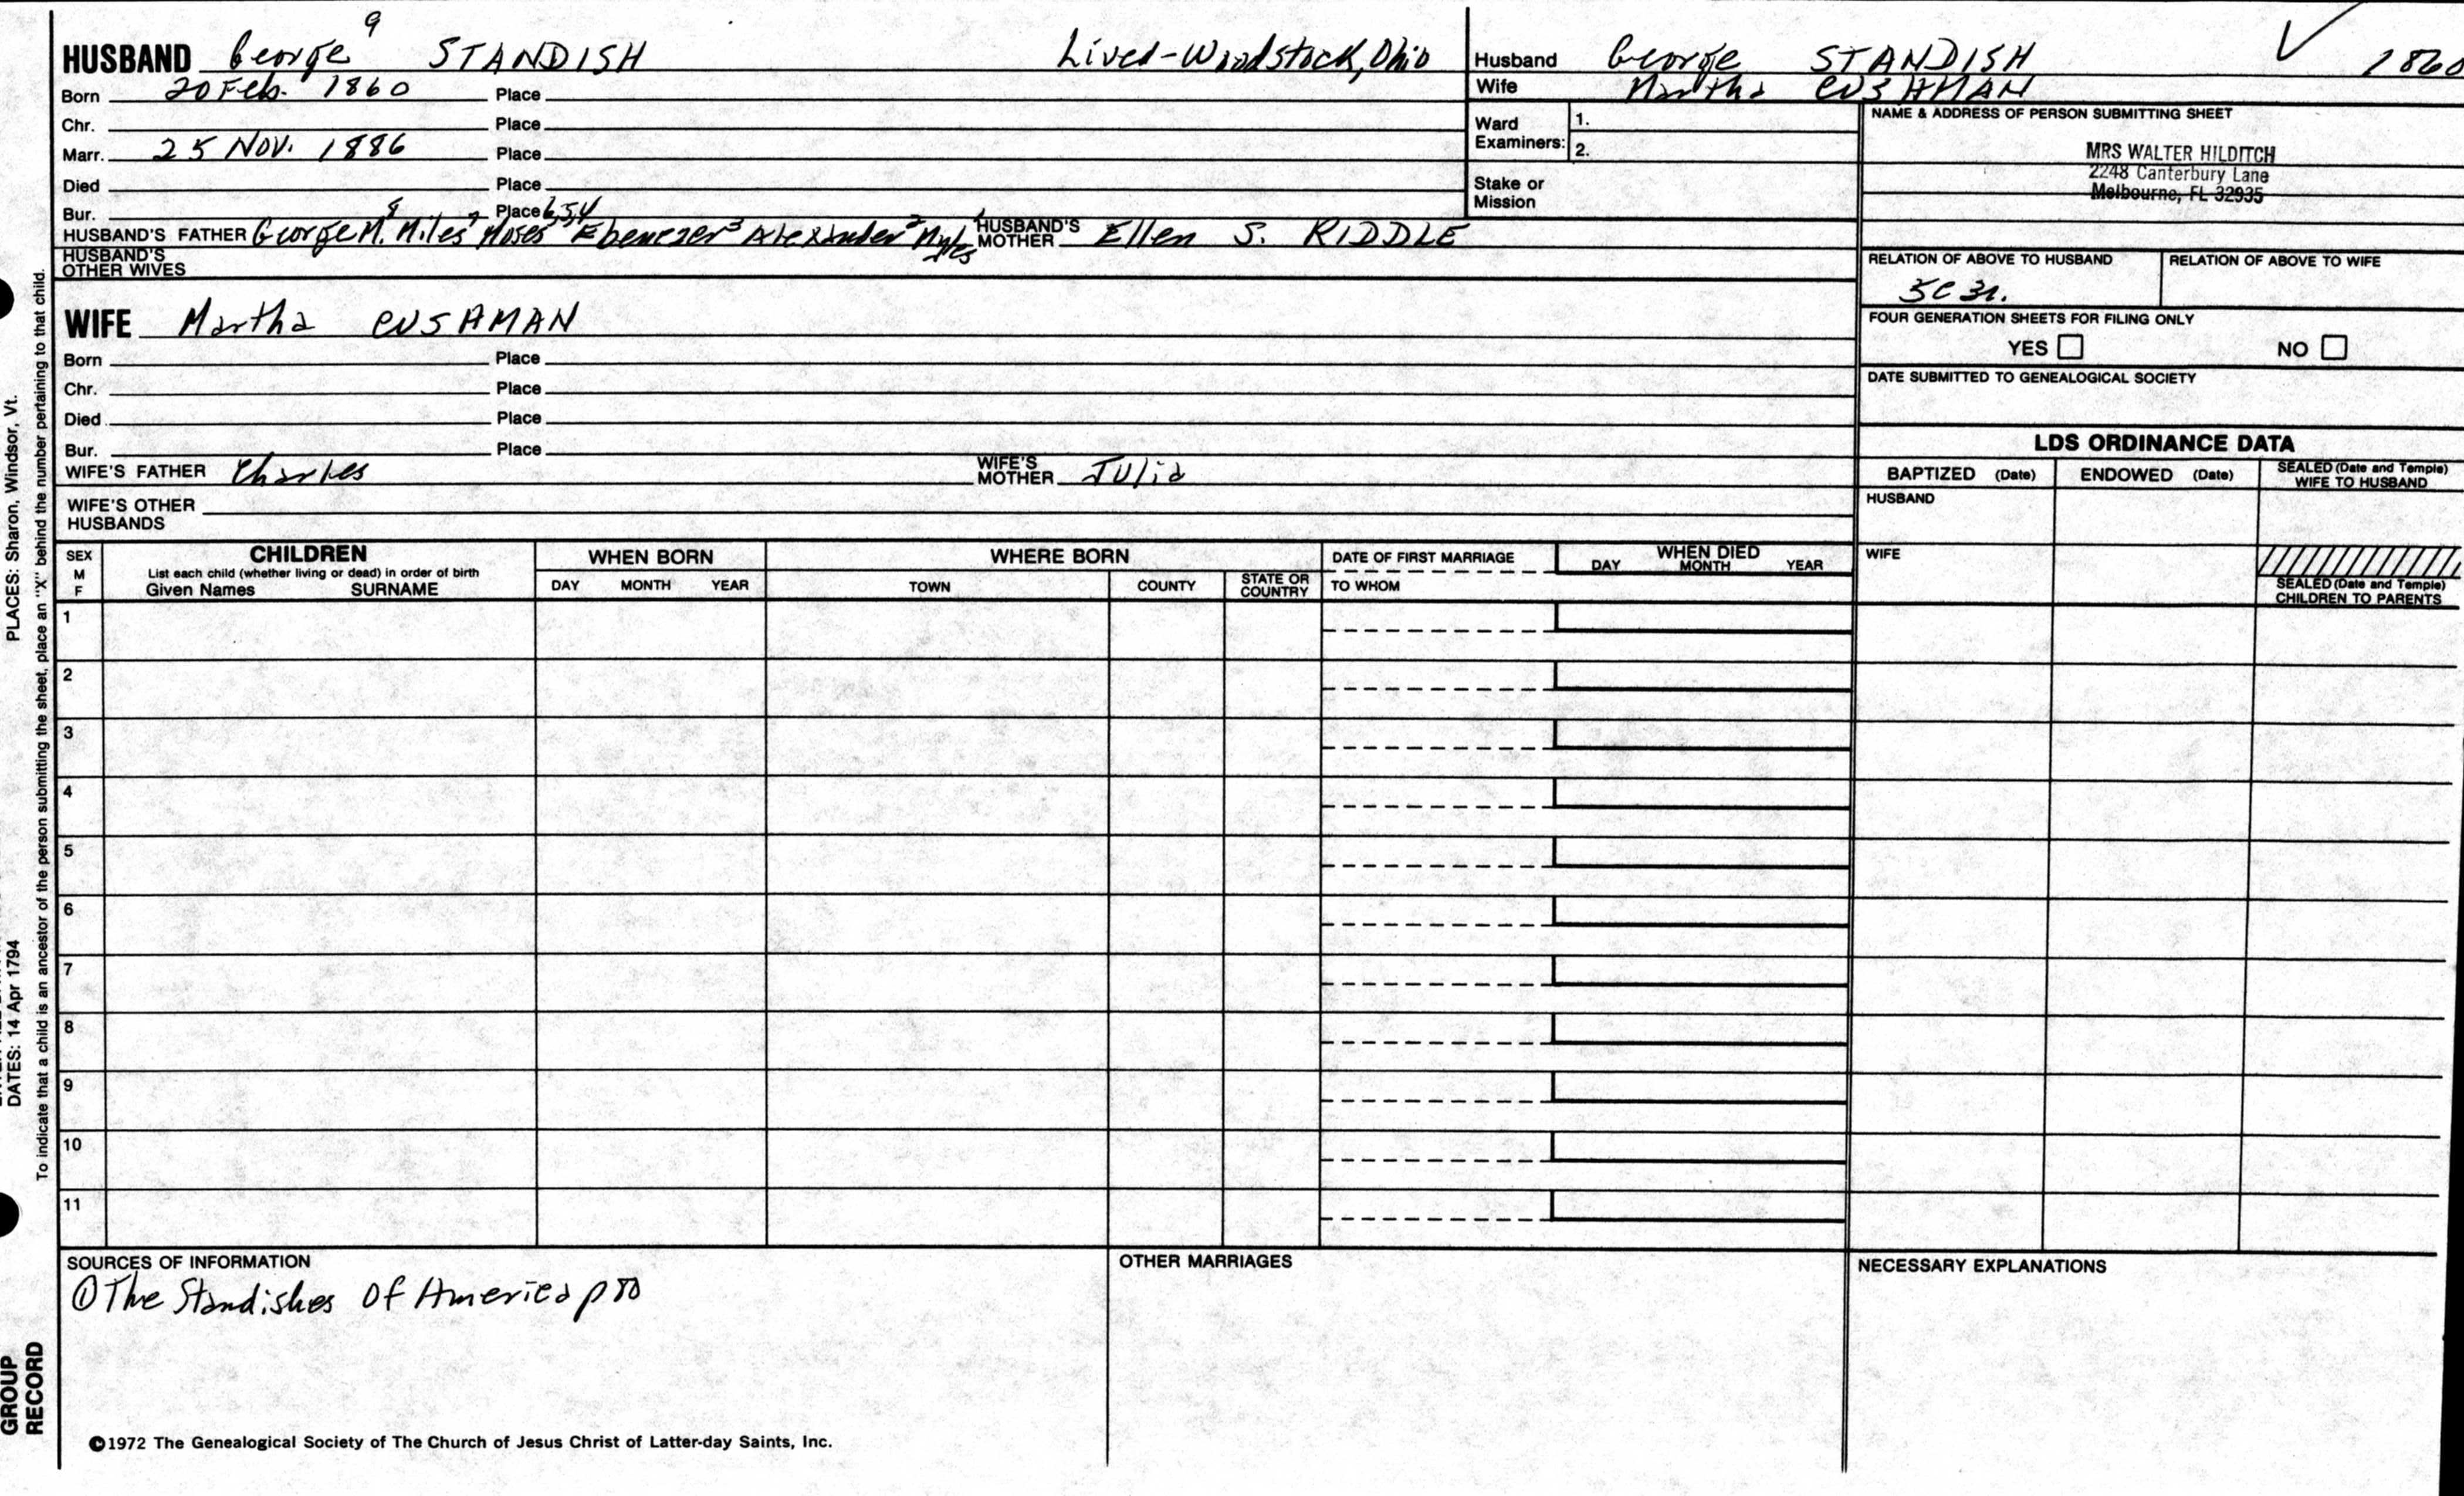 HUSBAND George 9 STANDISH Lived-Woodstock, Ohio
Born 20 Feb. 1860 Place
Chr. Place
Marr. 25 Nov. 1886 Place
Died Place
Bur. Place
HUSBAND'S FATHER George M. 8 Miles 7 Moses 6,5,4 Ebenezer 3 Alexander 2 Myles 1 HUSBAND'S MOTHER Ellen S. RIDDLE
HUSBAND'S OTHER WIVES
WIFE Martha CUSHMAN
Born Place
Chr. Place
Died Place
Bur. Place
WIFE'S FATHER Charles WIFE'S MOTHER Julia
WIFE'S OTHER HUSBANDS
Husband George STANDISH 1860
Wife Martha CUSHMAN
Ward Examiners: 1.
2.
Stake or Mission
NAME & ADDRESS OF PERSON SUBMITTING SHEET
MRS WALTER HILDITCH
2248 Canterbury Lane
Melbourne, FL 32935
RELATION OF ABOVE TO HUSBAND RELATION OF ABOVE TO WIFE
FOUR GENERATION SHEETS FOR FILING ONLY
YES NO
DATE SUBMITTED TO GENEALOGICAL SOCIETY
LDS ORDINANCE DATA
BAPTIZED (Date) ENDOWED (Date) SEALED (Date and Temple) WIFE TO HUSBAND
HUSBAND
WIFE
SEALED (Date and Temple) CHILDREN TO PARENTS
SEX M F
CHILDREN
List each child (whether living or dead) in order of birth
Given Names SURNAME
WHEN BORN
DAY MONTH YEAR
WHERE BORN
TOWN COUNTY STATE OR COUNTRY
DATE OF FIRST MARRIAGE
TO WHOM
WHEN DIED
DAY MONTH YEAR
1
2
3
4
5
6
7
8
9
10
11
SOURCES OF INFORMATION
① The Standishes of America p
OTHER MARRIAGES
NECESSARY EXPLANATIONS
©1972 The Genealogical Society of The Church of Jesus Christ of Latter-day Saints, Inc.
PLACES: Sharon, Windsor, Vt.
DATES: 14 Apr 1794
To indicate that a child is an ancestor of the person submitting the sheet, place an "X" behind the number pertaining to that child.
GROUP
RECORD